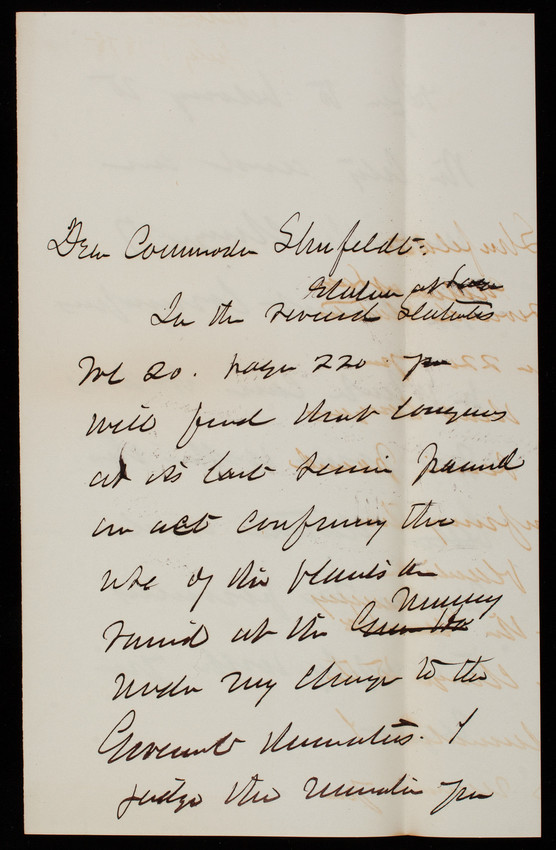 Dear Commodore Shufeldt:
Statues at
In the revised statutes
Vol 20. page 220. you
will find that Congress
at its last session passed
an act confining the
use of the plants &c
raised at the Nursery
under my charge to the
Government necessities. I
judge the remainder you